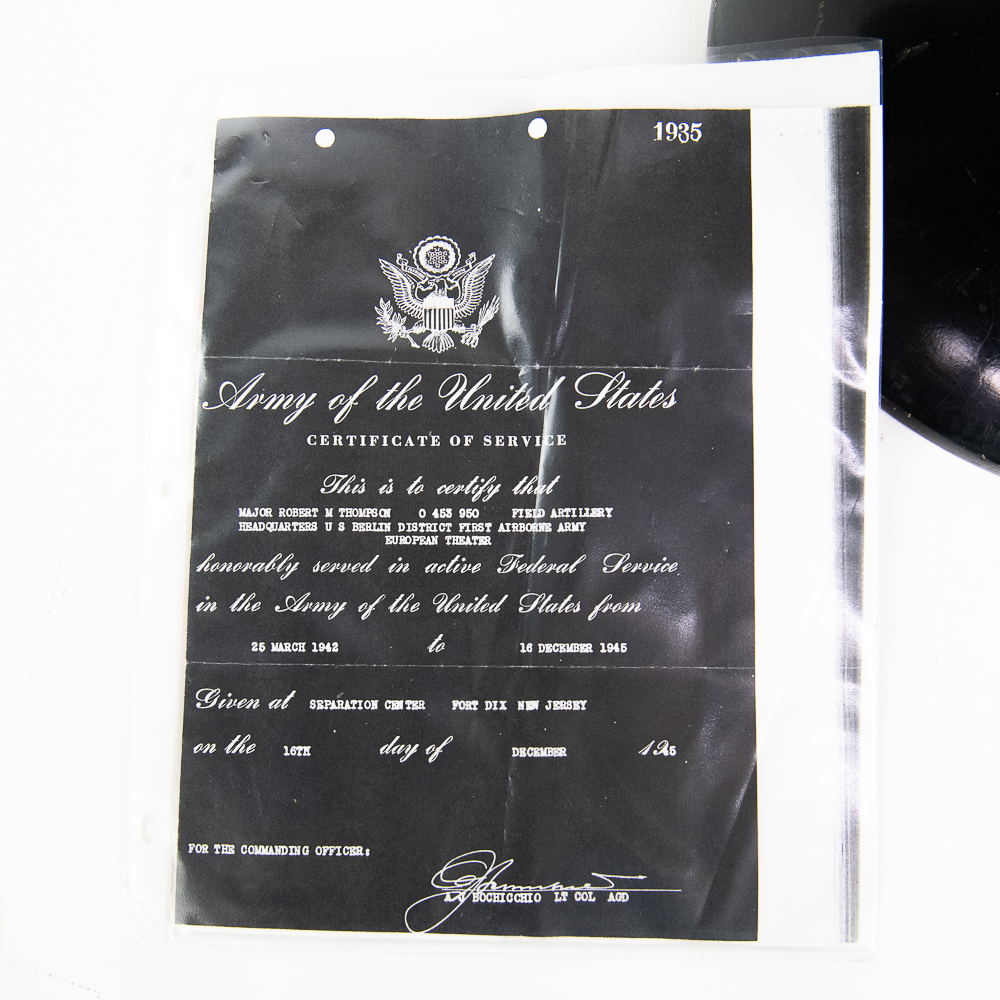 1935
Army of the United States
CERTIFICATE OF SERVICE
This is to certify that
MAJOR ROBERT M THOMPSON 0 453 950 FIELD ARTILLERY
HEADQUARTERS U S BERLIN DISTRICT FIRST AIRBORNE ARMY
EUROPEAN THEATER
honorably served in active Federal Service
in the Army of the United States from
25 MARCH 1942 to 16 DECEMBER 1945
Given at SEPARATION CENTER FORT DIX NEW JERSEY
on the 16TH day of DECEMBER 1945
FOR THE COMMANDING OFFICER:
BOCHICCHIO LT COL AGD